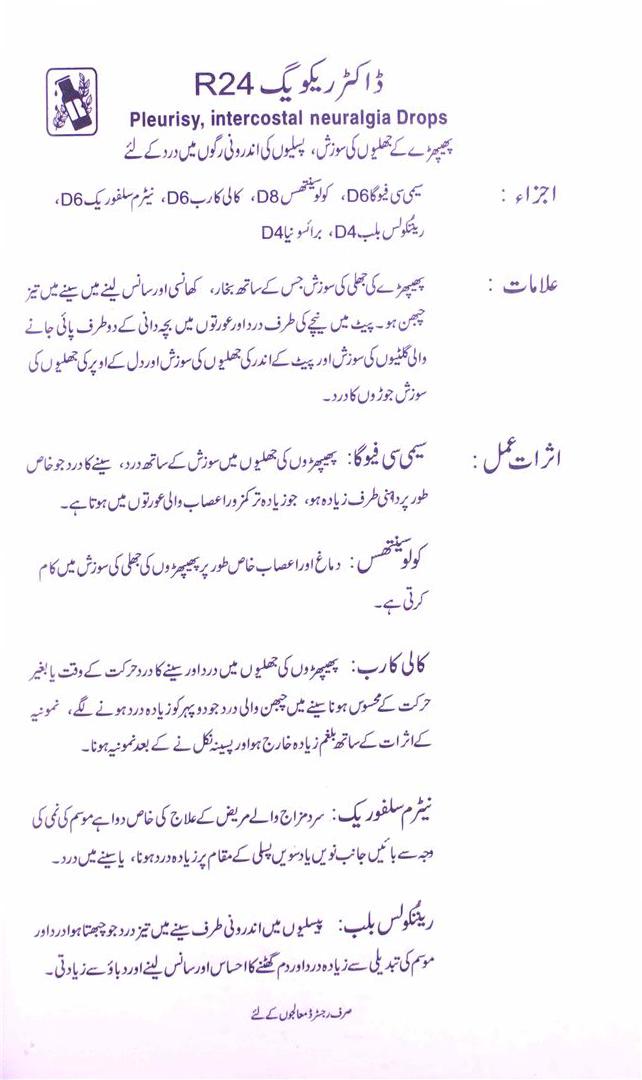 ڈاکٹر ریکویگ R24
Pleurisy, intercostal neuralgia Drops
پھیپھڑے کے جھلیوں کی سوزش، پسلیوں کی اندرونی رگوں میں درد کے لئے
اجزاء : سیمی سی فیوگا D6، کولوسینتھس D8، کالی کارب D6، نیٹرم سلفوریک D6،
رینکولس بلب D4، برائیونیا D4
علامات : پھیپھڑے کی جھلی کی سوزش جس کے ساتھ بخار، کھانسی اور سانس لینے میں سینے میں تیز
چبھن ہو۔ پیٹ میں نیچے کی طرف درد اور عورتوں میں بچہ دانی کے دو طرف پائی جانے
والی گلٹیوں کی سوزش اور پیٹ کے اندر کی جھلیوں کی سوزش اور دل کے اوپر کی جھلیوں کی
سوزش جوڑوں کا درد۔
اثرات عمل : سیمی سی فیوگا: پھیپھڑوں کی جھلیوں میں سوزش کے ساتھ درد، سینے کا درد جو خاص
طور پر داہنی طرف زیادہ ہو، جو زیادہ تر کمزور اعصاب والی عورتوں میں ہوتا ہے۔
کولوسینتھس: دماغ اور اعصاب خاص طور پر پھیپھڑوں کی جھلی کی سوزش میں کام
کرتی ہے۔
کالی کارب: پھیپھڑوں کی جھلیوں میں درد اور سینے کا درد حرکت کے وقت یا بغیر
حرکت کے محسوس ہونا سینے میں چبھن والی درد جو دوپہر کو زیادہ درد ہونے لگے، نمونیہ
کے اثرات کے ساتھ بلغم زیادہ خارج ہو اور پسینہ نکلنے کے بعد نمونیہ ہونا۔
نیٹرم سلفوریک: سرد مزاج والے مریض کے علاج کی خاص دوا ہے موسم کی نمی کی
وجہ سے بائیں جانب نویں یا دسویں پسلی کے مقام پر زیادہ درد ہونا، یا سینے میں درد۔
رینکولس بلب: پسلیوں میں اندرونی طرف سینے میں تیز درد جو چبھتا ہوا درد اور
موسم کی تبدیلی سے زیادہ درد اور دم گھٹنے کا احساس اور سانس لینے اور دباؤ سے زیادتی۔
صرف رجسٹرڈ معالجوں کے لئے